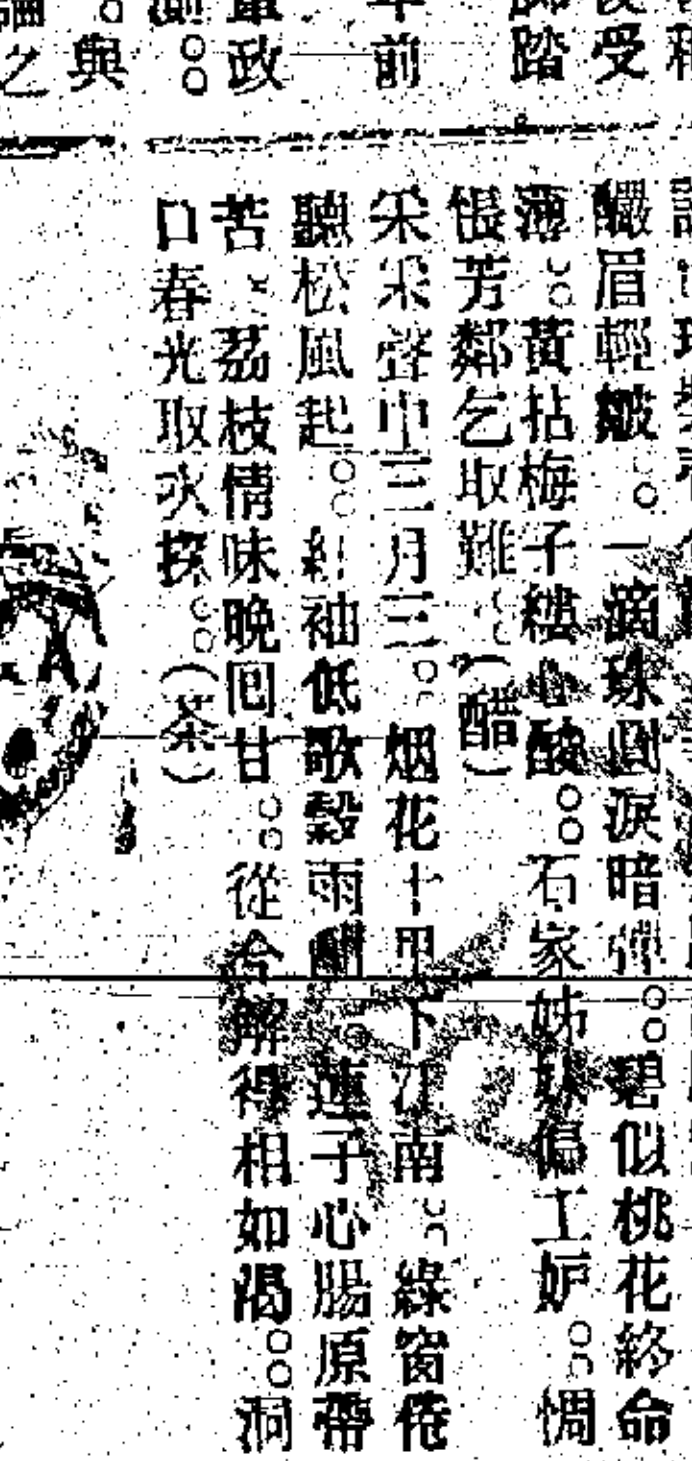 受
踏
前
政
與
之
釅眉輕皺。一滴珠圓淚暗彈。碧似桃花終命
薄。黃拈梅子縷心酸。石家姊妹偏工妒。惆
悵芳鄰乞取難。(醋)
采采聲中三月三。烟花十里下江南。綠窗倦
聽松風起。紅袖低歌穀雨酣。蓮子心腸原帶
苦。荔枝情味晚回甘。從今解得相如渴。洞
口春光取次探。(茶)